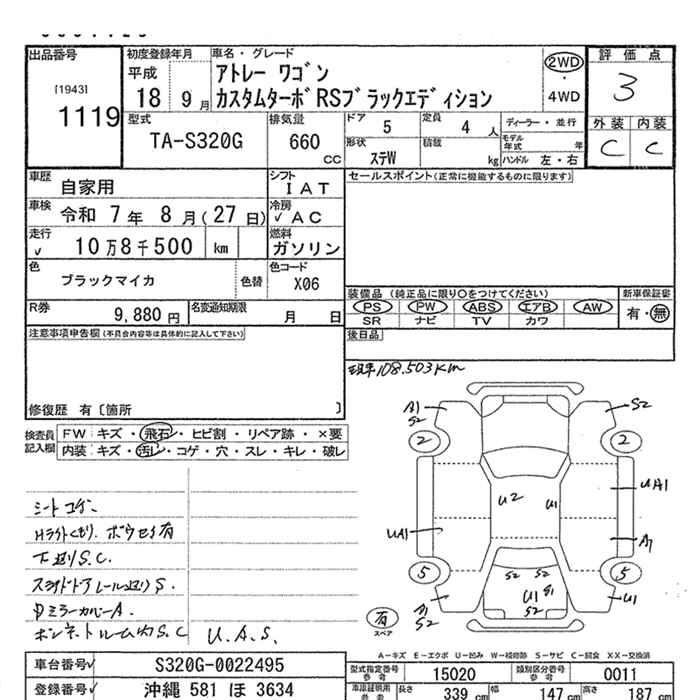 出品番号
[1943]
1119
初度登録年月
平成
18 9 月
車名・グレード
アトレー ワゴン
カスタムターボRSブラックエディション
2WD
・
4WD
評価点
3
外装 内装
C C
型式
TA-S320G
排気量
660
CC
ドア
5
定員
4 人
ディーラー・並行
形状
ステW
積載
kg
モデル
年式 年
ハンドル 左・右
車歴
自家用
シフト
IAT
車検
令和 7年 8月(27日)
冷房
✓AC
走行
✓ 10万8千500 km
燃料
ガソリン
色
ブラックマイカ
色替
色コード
X06
R券
9,880円
名変通知期限
月 日
セールスポイント(正常に機能するものに限ります)
装備品 (純正品に限り○をつけてください)
PS PW ABS エアB AW
SR ナビ TV カワ
新車保証書
有・無
後日品
注意事項申告欄(不具合内容等は具体的に記入して下さい)
修復歴 有〔箇所 〕
現車108.503Km
検査員
記入欄
FW キズ・飛石・ヒビ割・リペア跡・×要
内装 キズ・汚レ・コゲ・穴・スレ・キレ・破レ
シートコゲ
Hライトくもり. ボウセイ有
下廻りS.C.
スライドドアレール廻りS.
Dミラーカバー A.
ボンネットルーム内S.C
U.A.S.
A1
S2
S2
2
2
U2
U1
UA1
UA1
A1
5
5
S2
S2
U1
S1
S2
A1
S2
U1
有
スペア
A-キズ E-エクボ U-凹み W-補修跡 S-サビ C-腐食 XX-交換済
車台番号✓
S320G-0022495
登録番号✓
沖縄 581 ほ 3634
型式指定番号
参考
15020
類別区分番号
参考
0011
車庫証明用
参考
長さ
339 cm
幅
147 cm
高さ
187 cm